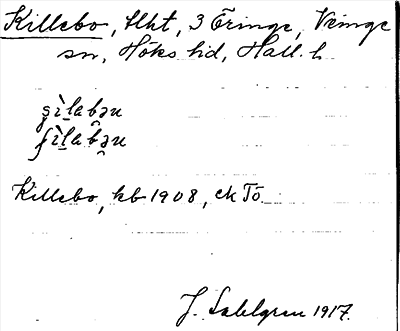 Killebo, tlht, 3 Öringe, Veinge
sn, Höks hd, Hall. l.
Killebo, kb 1908, ck To
J. Sahlgren 1917.